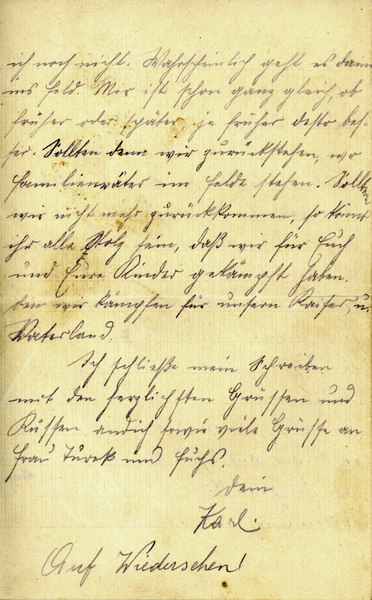 ich noch nicht. Wahrscheinlich geht es dann
ins Feld. Mir ist schon ganz gleich, ob
früher oder später, je früher desto bes-
ser. Sollten denn wir zurückstehen, wo
Familienväter im Felde stehen. Sollten
wir nicht mehr zurückkommen, so könnt
ihr alle stolz sein, daß wir für Euch
und Eure Kinder gekämpft haben.
den wir kämpfen für unsern Kaiser, u.
Vaterland.
Ich schließe mein Schreiben
mit den herzlichsten Grüssen und
Küssen an dich sowie viele Grüsse an
Frau Turek und Fuchs.
Dein
Karl.
Auf Wiedersehen!